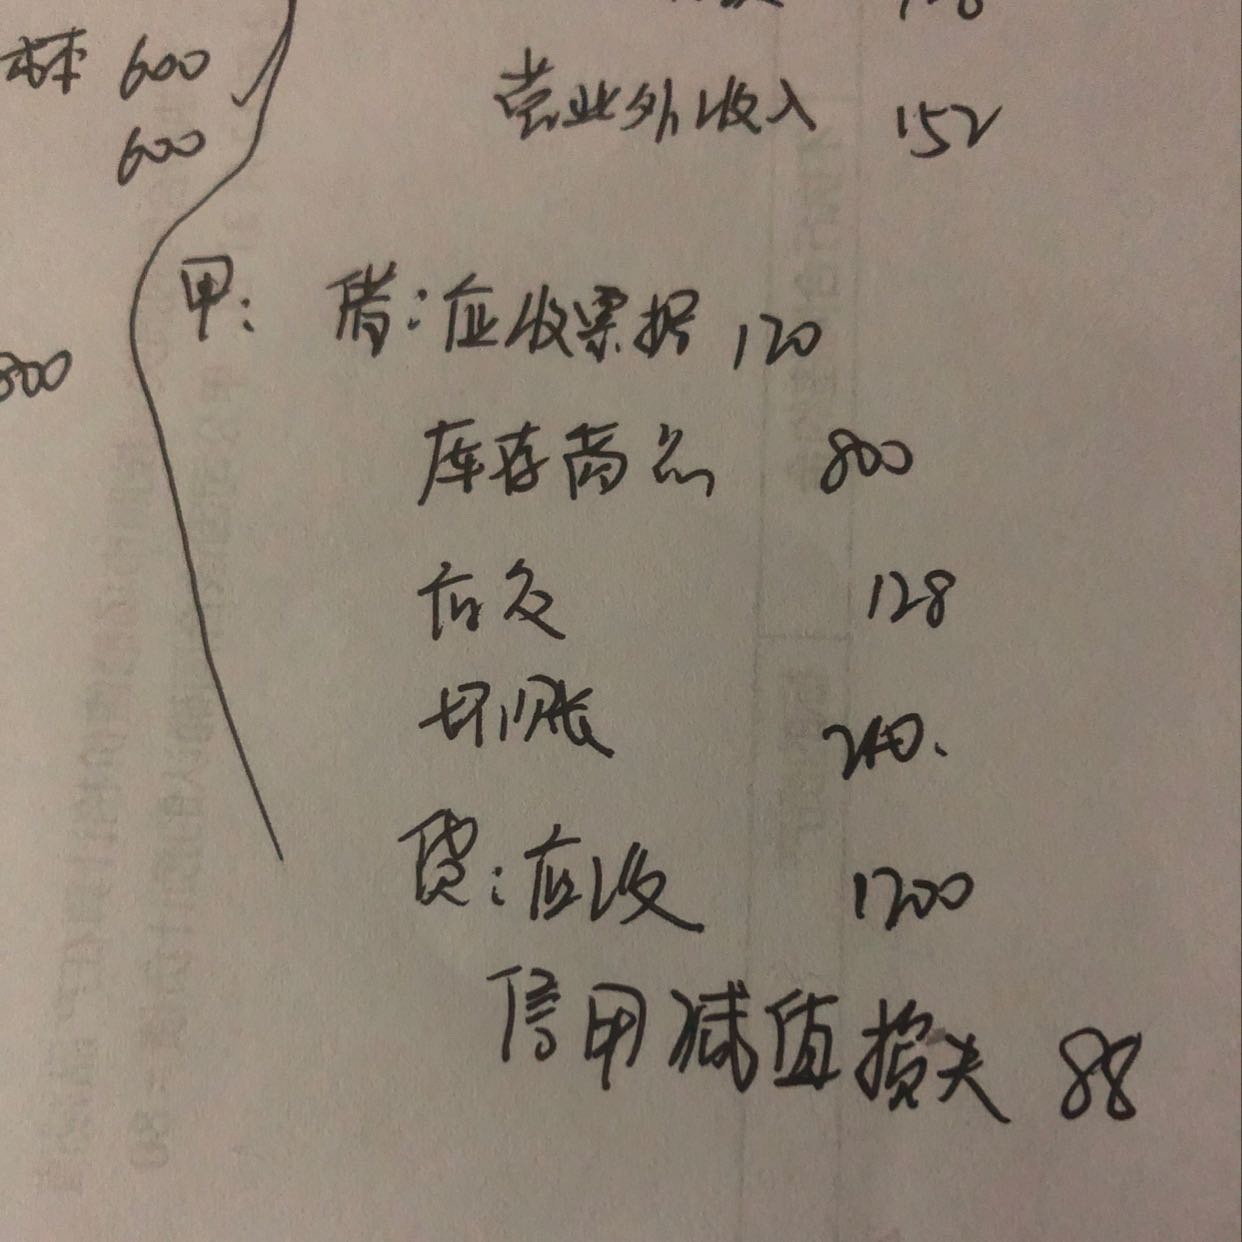 600
600
800
营业外收入 152
甲: 借:应收票据 120
库存商品 800
应交 128
坏账 240.
贷:应收 1200
信用减值损失 88